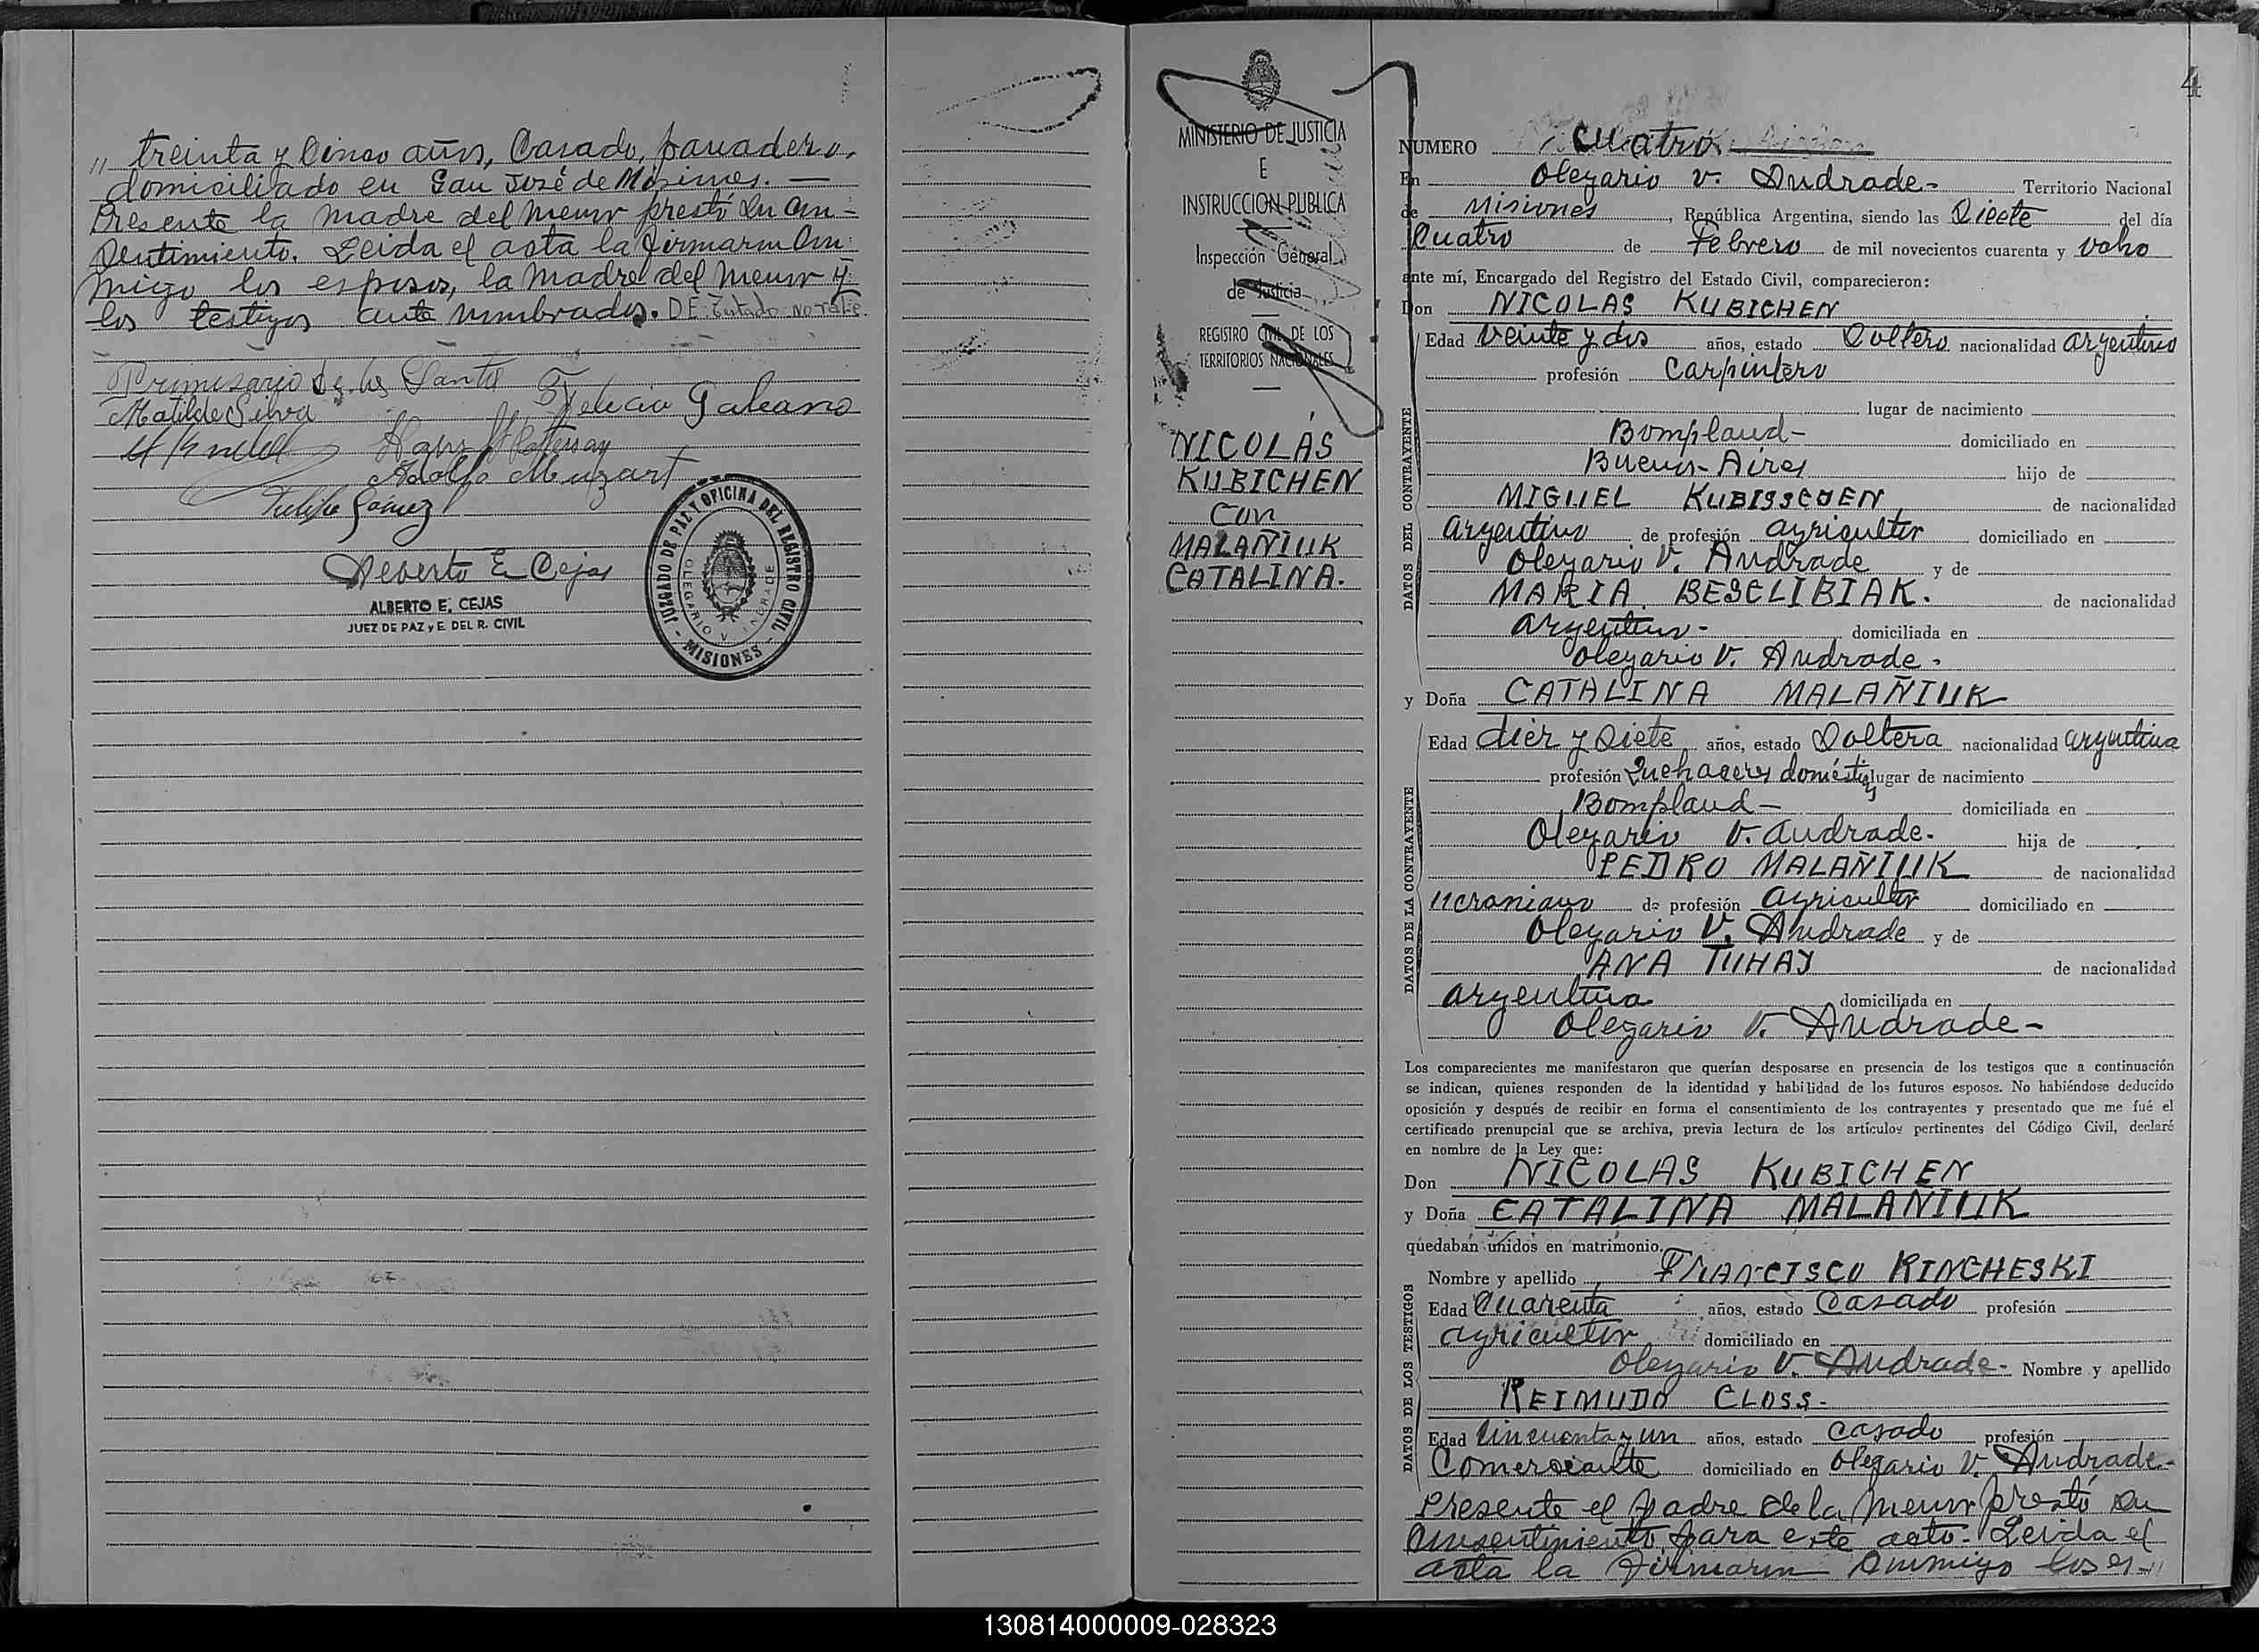 " treinta y Cinco años, Casado, panadero,
domiciliado en San José de Misiones. —
Presente la madre del menor prestó su con-
sentimiento. Leida el acta la firmaron con-
migo los esposos, la madre del menor y
los testigos ante nombrados. DE: Testado NO Vale.
Matilde Silva
Felicia Galeano
Adolfo Muzart
Felipe Gómez
Alberto E. Cejas
ALBERTO E. CEJAS
JUEZ DE PAZ y E. DEL R. CIVIL
JUZGADO DE PAZ Y OFICINA DEL REGISTRO CIVIL
OLEGARIO V. ANDRADE
- MISIONES -
MINISTERIO DE JUSTICIA
E
INSTRUCCION PUBLICA
Inspección General
de Justicia
REGISTRO CIVIL DE LOS
TERRITORIOS NACIONALES
NICOLÁS
KUBICHEN
Con
MALAÑIUK
CATALINA.
4
NUMERO Cuatro
En Olegario V. Andrade - Territorio Nacional
de Misiones, República Argentina, siendo las Siete del día
Cuatro de Febrero de mil novecientos cuarenta y ocho
ante mí, Encargado del Registro del Estado Civil, comparecieron:
Don NICOLAS KUBICHEN
DATOS DEL CONTRAYENTE
Edad Veinte y dos años, estado Soltero nacionalidad argentino
profesión Carpintero
lugar de nacimiento
Bompland - domiciliado en
Buenos Aires hijo de
MIGUEL KUBISSCHEN de nacionalidad
Argentino de profesión agricultor domiciliado en
Olegario V. Andrade y de
MARIA BESCLIBIAK. de nacionalidad
Argentino - domiciliada en
Olegario V. Andrade.
y Doña CATALINA MALAÑIUK
DATOS DE LA CONTRAYENTE
Edad diez y Siete años, estado Soltera nacionalidad argentina
profesión Quehaceres domésticos lugar de nacimiento
Bompland - domiciliada en
Olegario V. Andrade. hija de
PEDRO MALAÑIUK de nacionalidad
Ucraniano de profesión agricultor domiciliado en
Olegario V. Andrade y de
ANA TUHAY de nacionalidad
argentina domiciliada en
Olegario V. Andrade -
Los comparecientes me manifestaron que querían desposarse en presencia de los testigos que a continuación
se indican, quienes responden de la identidad y habilidad de los futuros esposos. No habiéndose deducido
oposición y después de recibir en forma el consentimiento de los contrayentes y presentado que me fué el
certificado prenupcial que se archiva, previa lectura de los artículos pertinentes del Código Civil, declaré
en nombre de la Ley que:
Don NICOLAS KUBICHEN
y Doña CATALINA MALANIUK
quedaban unidos en matrimonio.
DATOS DE LOS TESTIGOS
Nombre y apellido FRANCISCO RINCHESKI
Edad Cuarenta años, estado Casado profesión
agricultor domiciliado en
Olegario V. Andrade - Nombre y apellido
REIMUDO CLOSS.-
Edad Cincuenta y un años, estado Casado profesión
Comerciante domiciliado en Olegario V. Andrade.-
Presente el padre de la menor prestó su
consentimiento para este acto. Leida el
acta la firmaron conmigo los es- "
130814000009-028323